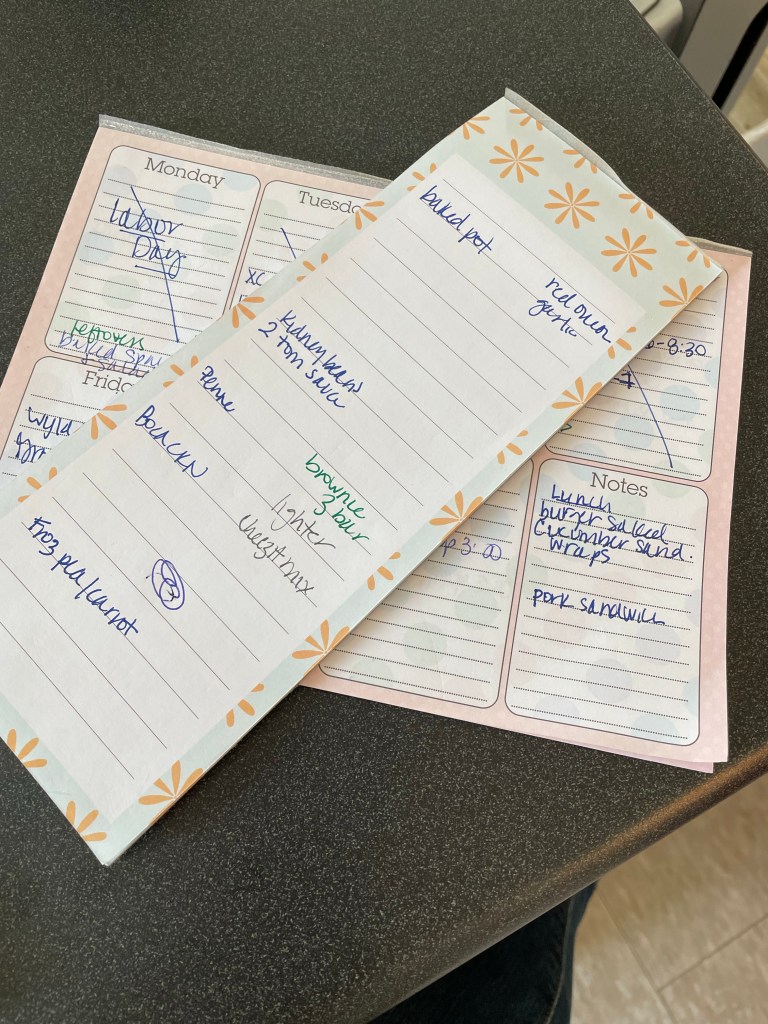 baked pot
red onion
garlic
Kidney beans
2 tom sauce
Penne
BOCACKN
brownie
3 bar
lighter
cheezit mix
Froz pea/carrot
Monday
Labor
Day
leftovers
baked
Tuesd
XC
-8:30
Frida
Wyld
3:00
Notes
Lunch
burger salad
Cucumber sand.
wraps
pork sandwich